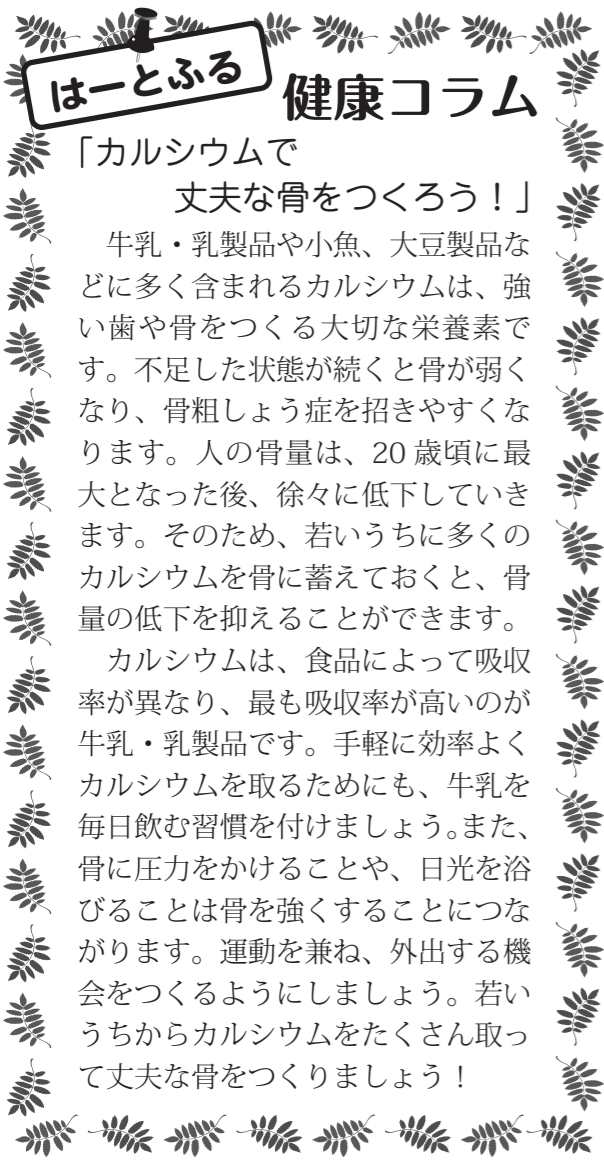 はーとふる
健康コラム
「カルシウムで
丈夫な骨をつくろう！」
　牛乳・乳製品や小魚、大豆製品な
どに多く含まれるカルシウムは、強
い歯や骨をつくる大切な栄養素で
す。不足した状態が続くと骨が弱く
なり、骨粗しょう症を招きやすくな
ります。人の骨量は、20 歳頃に最
大となった後、徐々に低下していき
ます。そのため、若いうちに多くの
カルシウムを骨に蓄えておくと、骨
量の低下を抑えることができます。
　カルシウムは、食品によって吸収
率が異なり、最も吸収率が高いのが
牛乳・乳製品です。手軽に効率よく
カルシウムを取るためにも、牛乳を
毎日飲む習慣を付けましょう。また、
骨に圧力をかけることや、日光を浴
びることは骨を強くすることにつな
がります。運動を兼ね、外出する機
会をつくるようにしましょう。若い
うちからカルシウムをたくさん取っ
て丈夫な骨をつくりましょう！